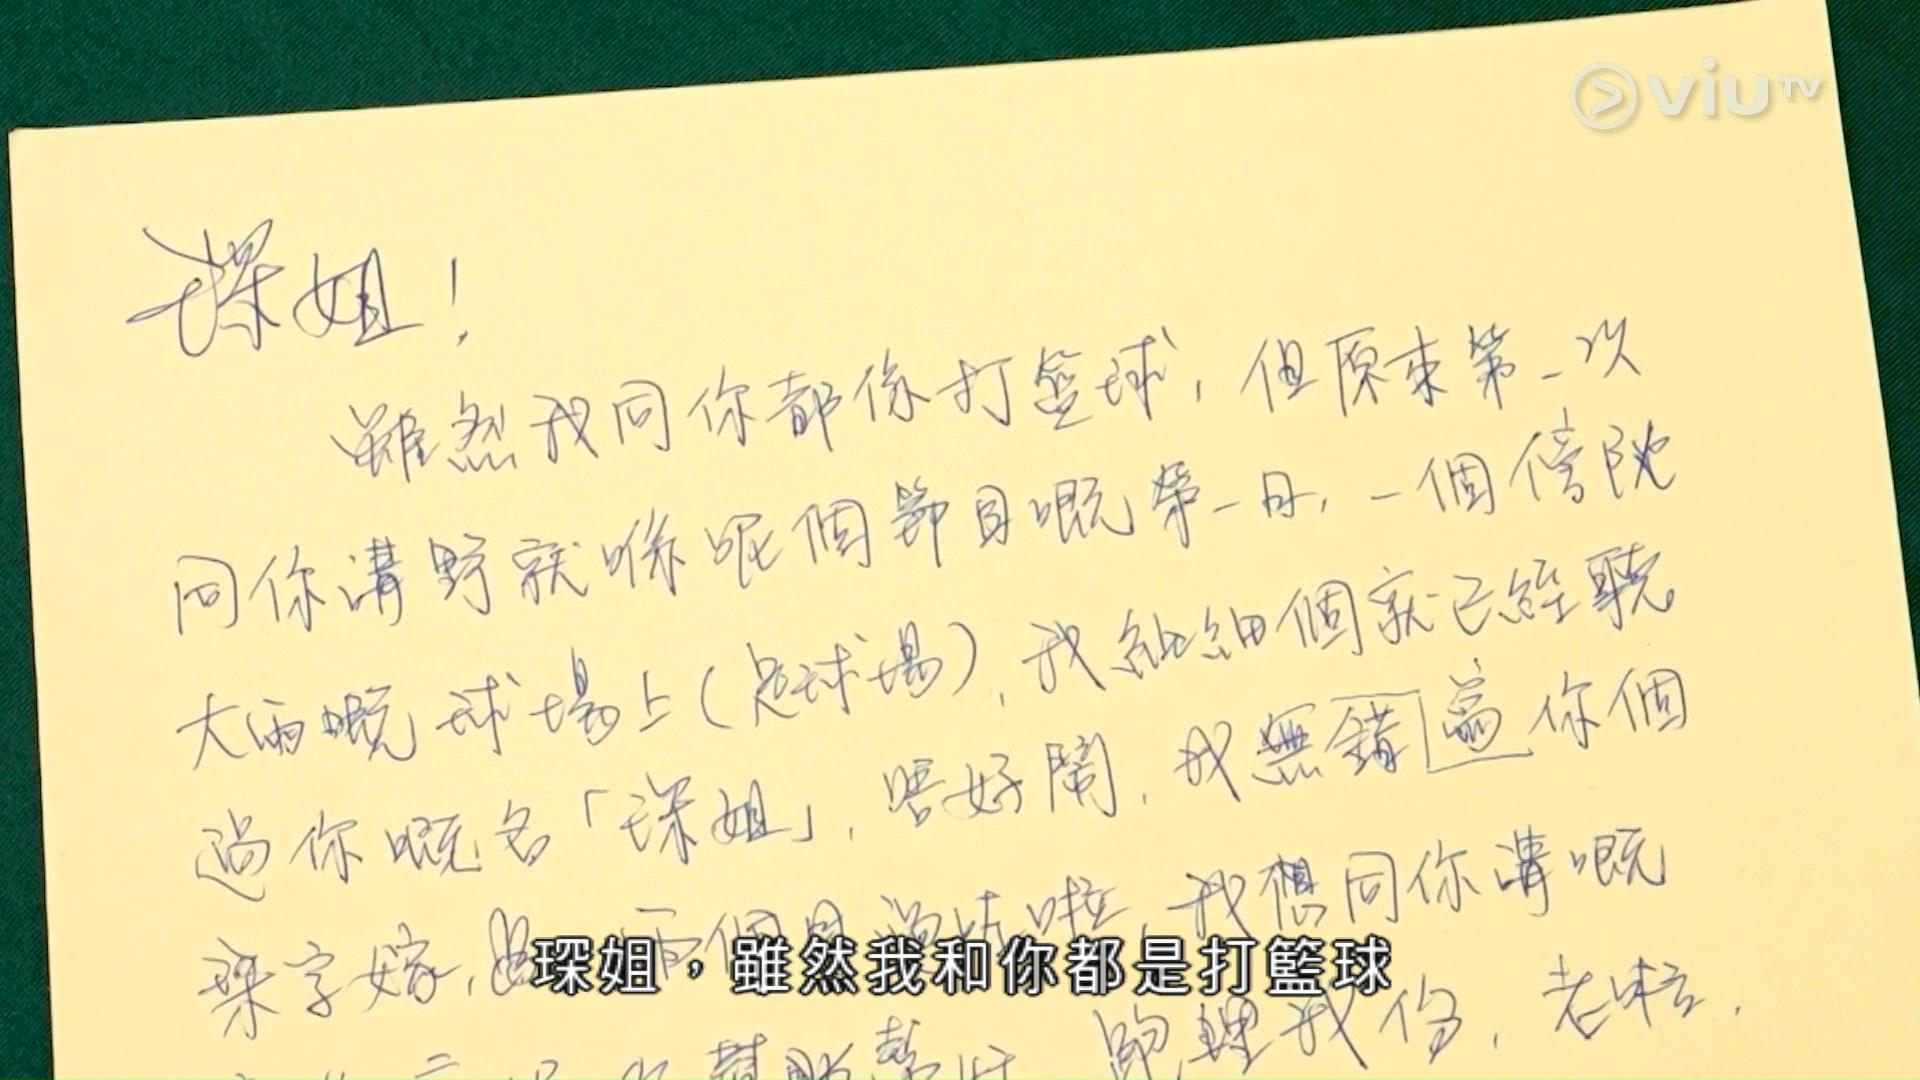 viuTV
琛姐！
雖然我同你都係打籃球，但原來第一次
同你溝野就喺呢個節目嘅第一日，一個傍陀
大雨嘅球場上(足球場)，我細細個就已經聽
過你嘅名「琛姐」，唔好鬧，我無錯 你個
琛字嫁， 兩個月 啦，我想同你溝嘅
老啦，
琛姐，雖然我和你都是打籃球